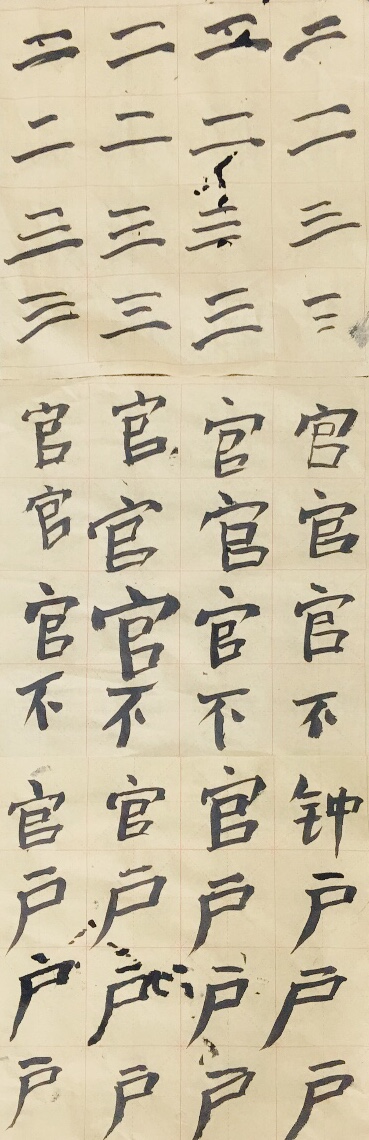 二二二二
二二二二
三三三三
三三三三
官官官官
官官官官
官官官官
不不不不
官官官钟
户户户户
户户户户
户户户户